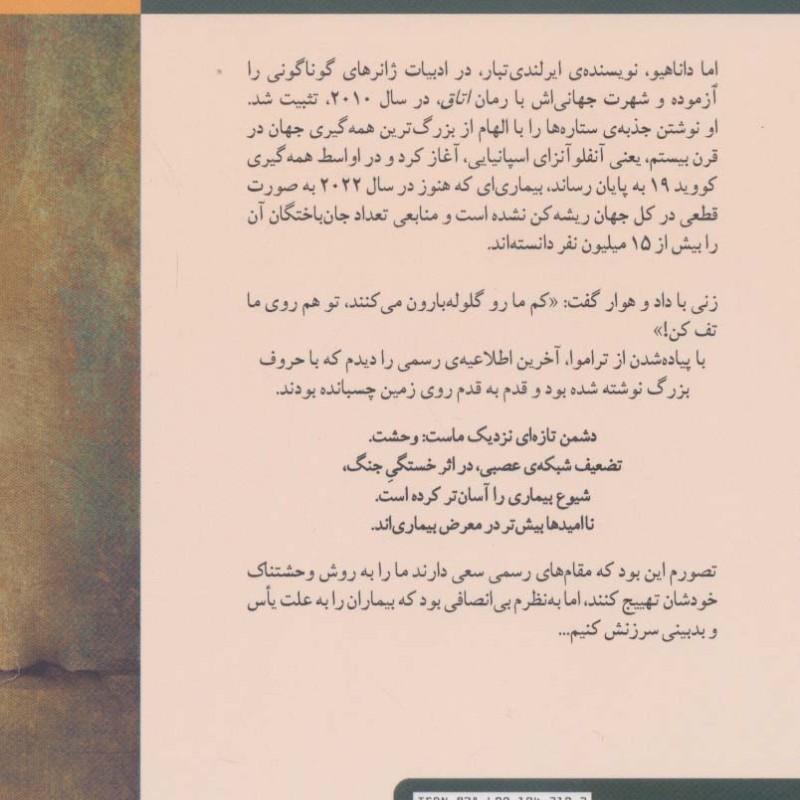 اما داناهیو، نویسنده‌ی ایرلندی‌تبار، در ادبیات ژانرهای گوناگونی را
آزموده و شهرت جهانی‌اش با رمان اتاق، در سال ۲۰۱۰، تثبیت شد.
او نوشتن جذبه‌ی ستاره‌ها را با الهام از بزرگ‌ترین همه‌گیری جهان در
قرن بیستم، یعنی آنفلوآنزای اسپانیایی، آغاز کرد و در اواسط همه‌گیری
کووید ۱۹ به پایان رساند، بیماری‌ای که هنوز در سال ۲۰۲۲ به صورت
قطعی در کل جهان ریشه‌کن نشده است و منابعی تعداد جان‌باختگان آن
را بیش از ۱۵ میلیون نفر دانسته‌اند.
زنی با داد و هوار گفت: «کم ما رو گلوله‌بارون می‌کنند، تو هم روی ما
تف کن!»
با پیاده‌شدن از تراموا، آخرین اطلاعیه‌ی رسمی را دیدم که با حروف
بزرگ نوشته شده بود و قدم به قدم روی زمین چسبانده بودند.
دشمن تازه‌ای نزدیک ماست: وحشت.
تضعیف شبکه‌ی عصبی، در اثر خستگیِ جنگ،
شیوع بیماری را آسان‌تر کرده است.
ناامیدها بیش‌تر در معرض بیماری‌اند.
تصورم این بود که مقام‌های رسمی سعی دارند ما را به روش وحشتناک
خودشان تهییج کنند، اما به‌نظرم بی‌انصافی بود که بیماران را به علت یأس
و بدبینی سرزنش کنیم...